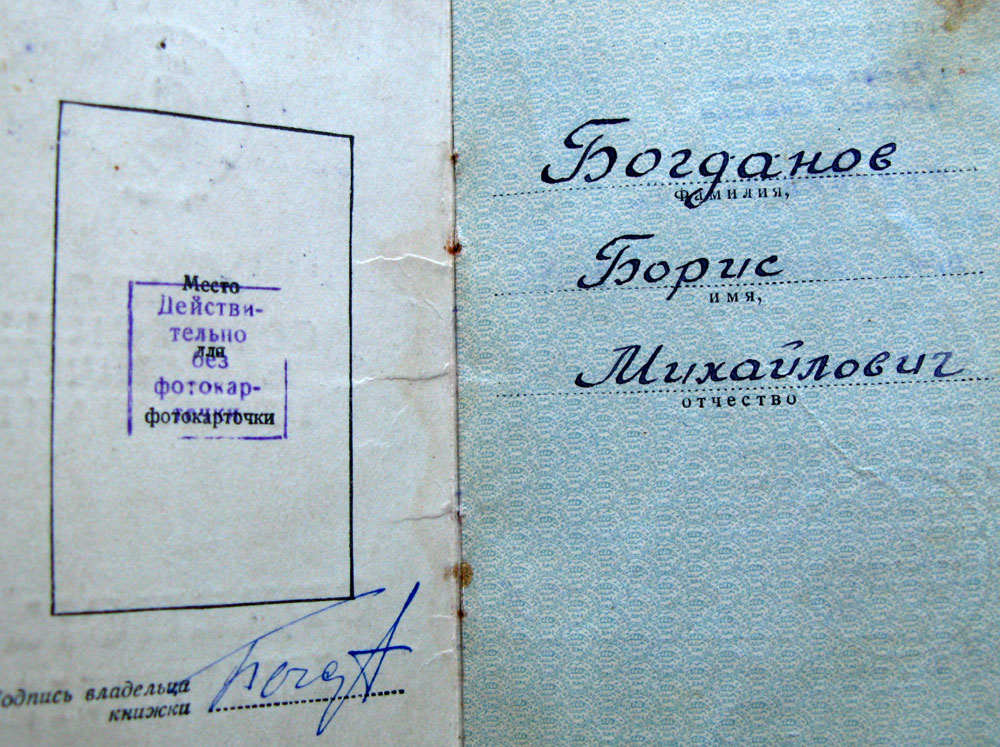 Место
Действи-
тельно
для
без
фотокар-
точки
фотокарточки
владельца
книжки
Богданов
фамилия,
Борис
имя,
Михайлович
отчество